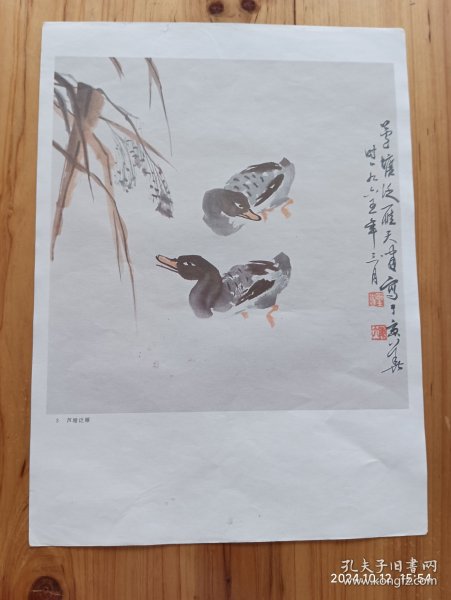 芦塘泛雁天胄寫于京華
时一九八五年三月
3 芦塘泛雁
孔夫子旧书网
www.kongfz.com
2024.10.12 15:54